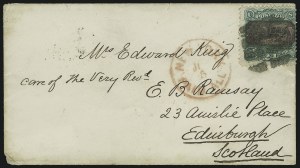 Mrs Edward King
care of the Very Revd
E B Ramsay
23 Ainslie Place
Edinburgh
Scotland